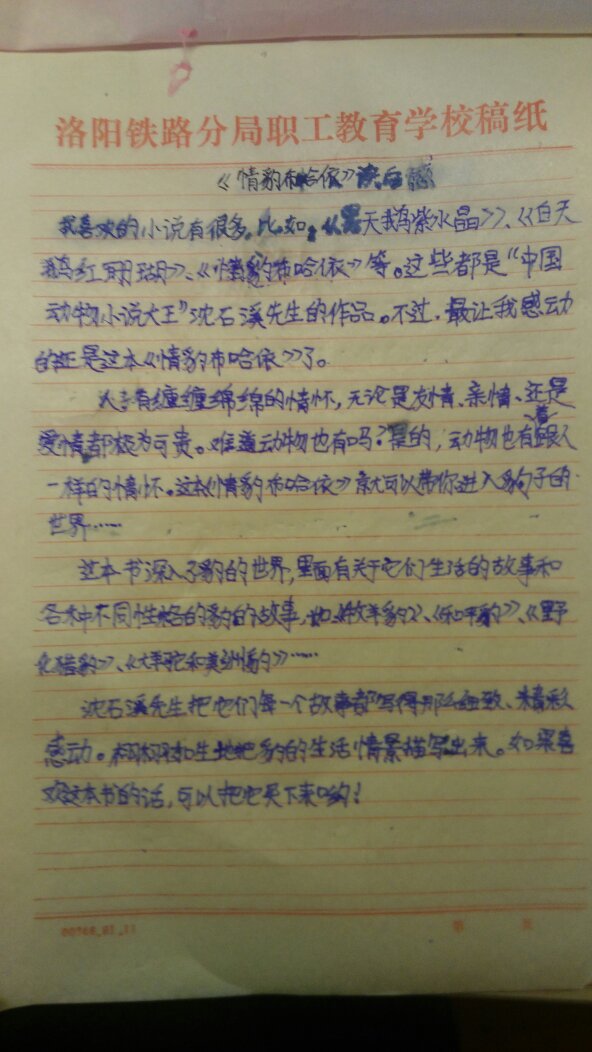 洛阳铁路分局职工教育学校稿纸
《情豹布哈依》读后感
我喜欢的小说有很多。比如,《黑天鹅紫水晶》、《白天
鹅红珊瑚》、《情豹布哈依》等。这些都是“中国
动物小说大王”沈石溪先生的作品。不过,最让我感动
的还是这本《情豹布哈依》了。
人有缠缠绵绵的情怀,无论是友情、亲情、还是
爱情都极为可贵。难道动物也有吗?是的,动物也有着跟人
一样的情怀。这本《情豹布哈依》就可以带你进入豹子的
世界……
这本书深入了豹的世界,里面有关于它们生活的故事和
各种不同性格的豹的故事,如《牧羊豹》、《和平豹》、《野
化猎豹》、《大羊驼和美洲豹》……
沈石溪先生把它们每一个故事都写得那么细致、精彩
感动。栩栩如生地把豹的生活情景描写出来。如果喜
欢这本书的话,可以把它买下来哟!
第 页